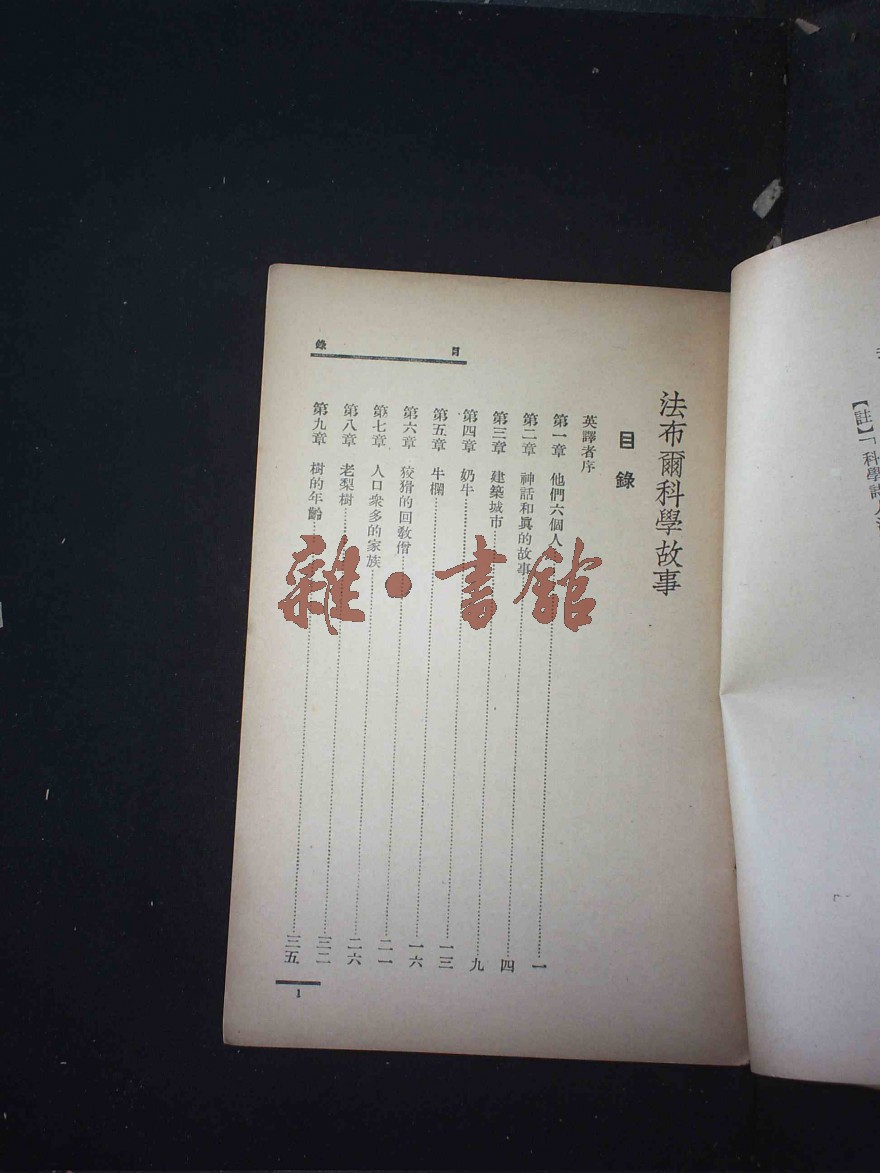 【註】「科學詩人
法布爾科學故事
目錄
英譯者序
第一章 他們六個人 一
第二章 神話和眞的故事 四
第三章 建築城市 九
第四章 奶牛 一三
第五章 牛欄 一六
第六章 狡猾的回教僧 二一
第七章 人口衆多的家族 二六
第八章 老梨樹 三二
第九章 樹的年齡 三五
目錄
1
雜·書館